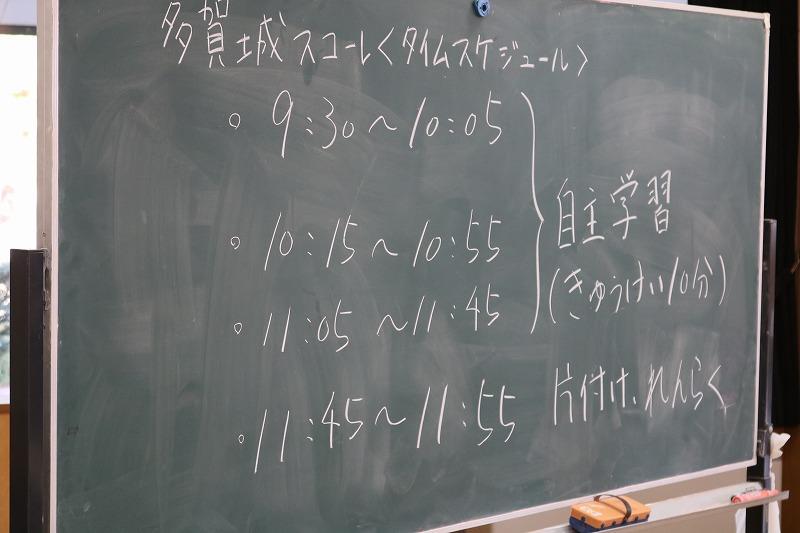 多賀城スコーレ<タイムスケジュール>
。9:30~10:05
。10:15~10:55
。11:05~11:45
自主学習
(きゅうけい10分)
。11:45~11:55 片付け、れんらく